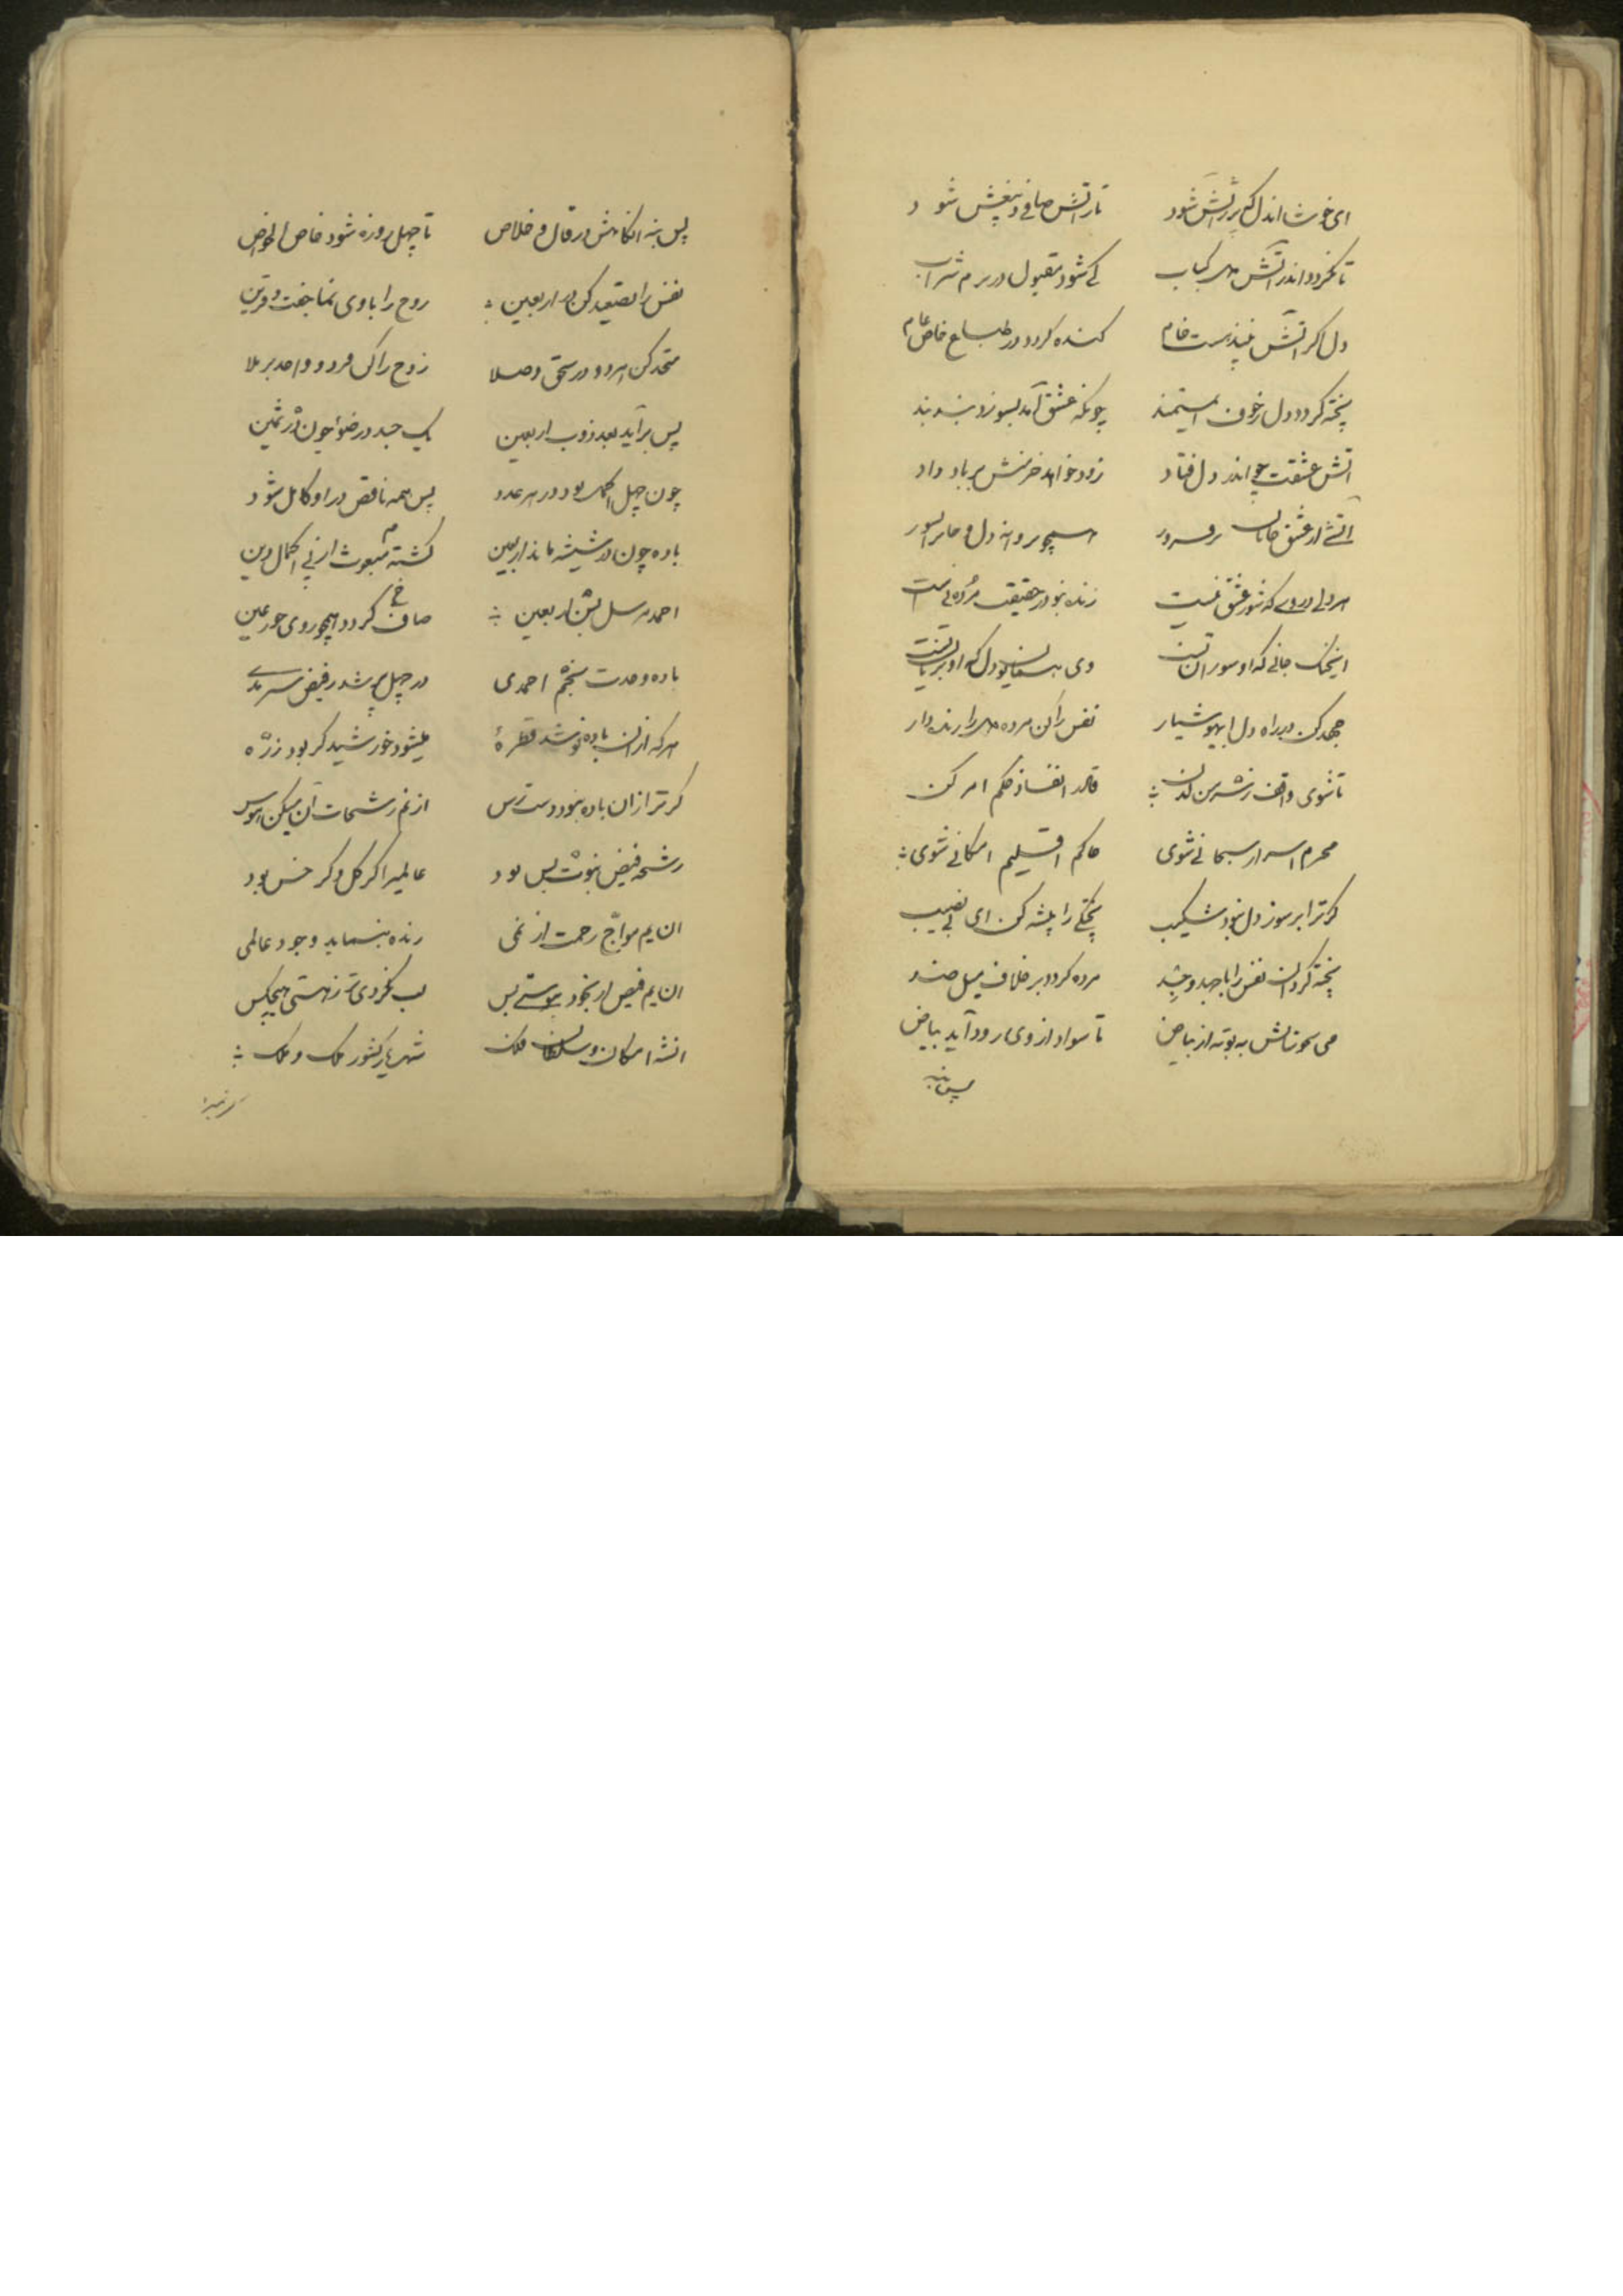 ای خوشا اندل که پر آتش شود تا ز آتش صافی و بیغش شود
تا نگردد اندر آتش دل کباب کی شود مقبول در بزم شراب
دل اگر آتش نبیندهست خام کنده گردد در طبایع خاص عام
پخته گردد دل ز خوف ای مستمند چونکه عشق آمد بسوزد بند بند
آتش عشقت چو اندر دل فتاد زود خواهد خرمنش بر باد داد
آتشی از عشق جانان برفروز همچو پروانه دل و جانرا بسوز
هر دلی در وی که شور عشق نیست زنده نبود در حقیقت مرده‌ایست
اینک جانی که او سوزان تست وی همایون دل که او بریان تست
جهد کن در راه دل ای هوشیار نفس را کن مرده دل را زنده دار
تا شوی واقف ز سر من لدن قالد انفاذ حکم امر کن
محرم اسرار سبحانی شوی حاکم اقلیم امکانی شوی
گر ترا بر سوز دل نبود شکیب پختگی را پیشه کن ای بی نصیب
پخته گردان نفس را با جهد و جد مرده گردد بر خلاف میل ضد
می بسوزانش به بوته از بیاض تا سواد از وی رود آید بیاض
پس بنه
پس بنه انگاهش در قال و خلاص تا چهل روزه شود خاص الخواص
نفس را تصعید کن در اربعین روح را با وی نما جفت و قرین
متحد کن هر دو در سحق وصلا زوج را کن فرد و واحد بر ملا
پس برآید بعد ذوب اربعین یک جسد در ضوء چون در ثمین
چون چهل اکمل بود در هر عدد پس همه ناقص در او کامل شود
باده چون در شیشه ماند اربعین صاف گردد همچو روی حور عین
احمد مرسل بشن اربعین گشته مبعوث از پی اکمال دین
باده وحدت بخم احمدی در چهل پر شد ز فیض سرمدی
هر که از آن باده نوشد قطرهٔ میشود خورشید گر بود ذره
گر ترا زان باده نبود دست رس از نم رشحات آن میکن هوس
رشحه فیض نبوت بس بود عالمیرا گر گل و گر خس بود
ان یم مواج رحمت از نمی زنده بنماید وجود عالمی
ان یم فیض ار بخود بستی پس لب نکردی تر ز هستی هیچکس
انشه امکان و سلطان فلک شهریار کشور ملک و ملک